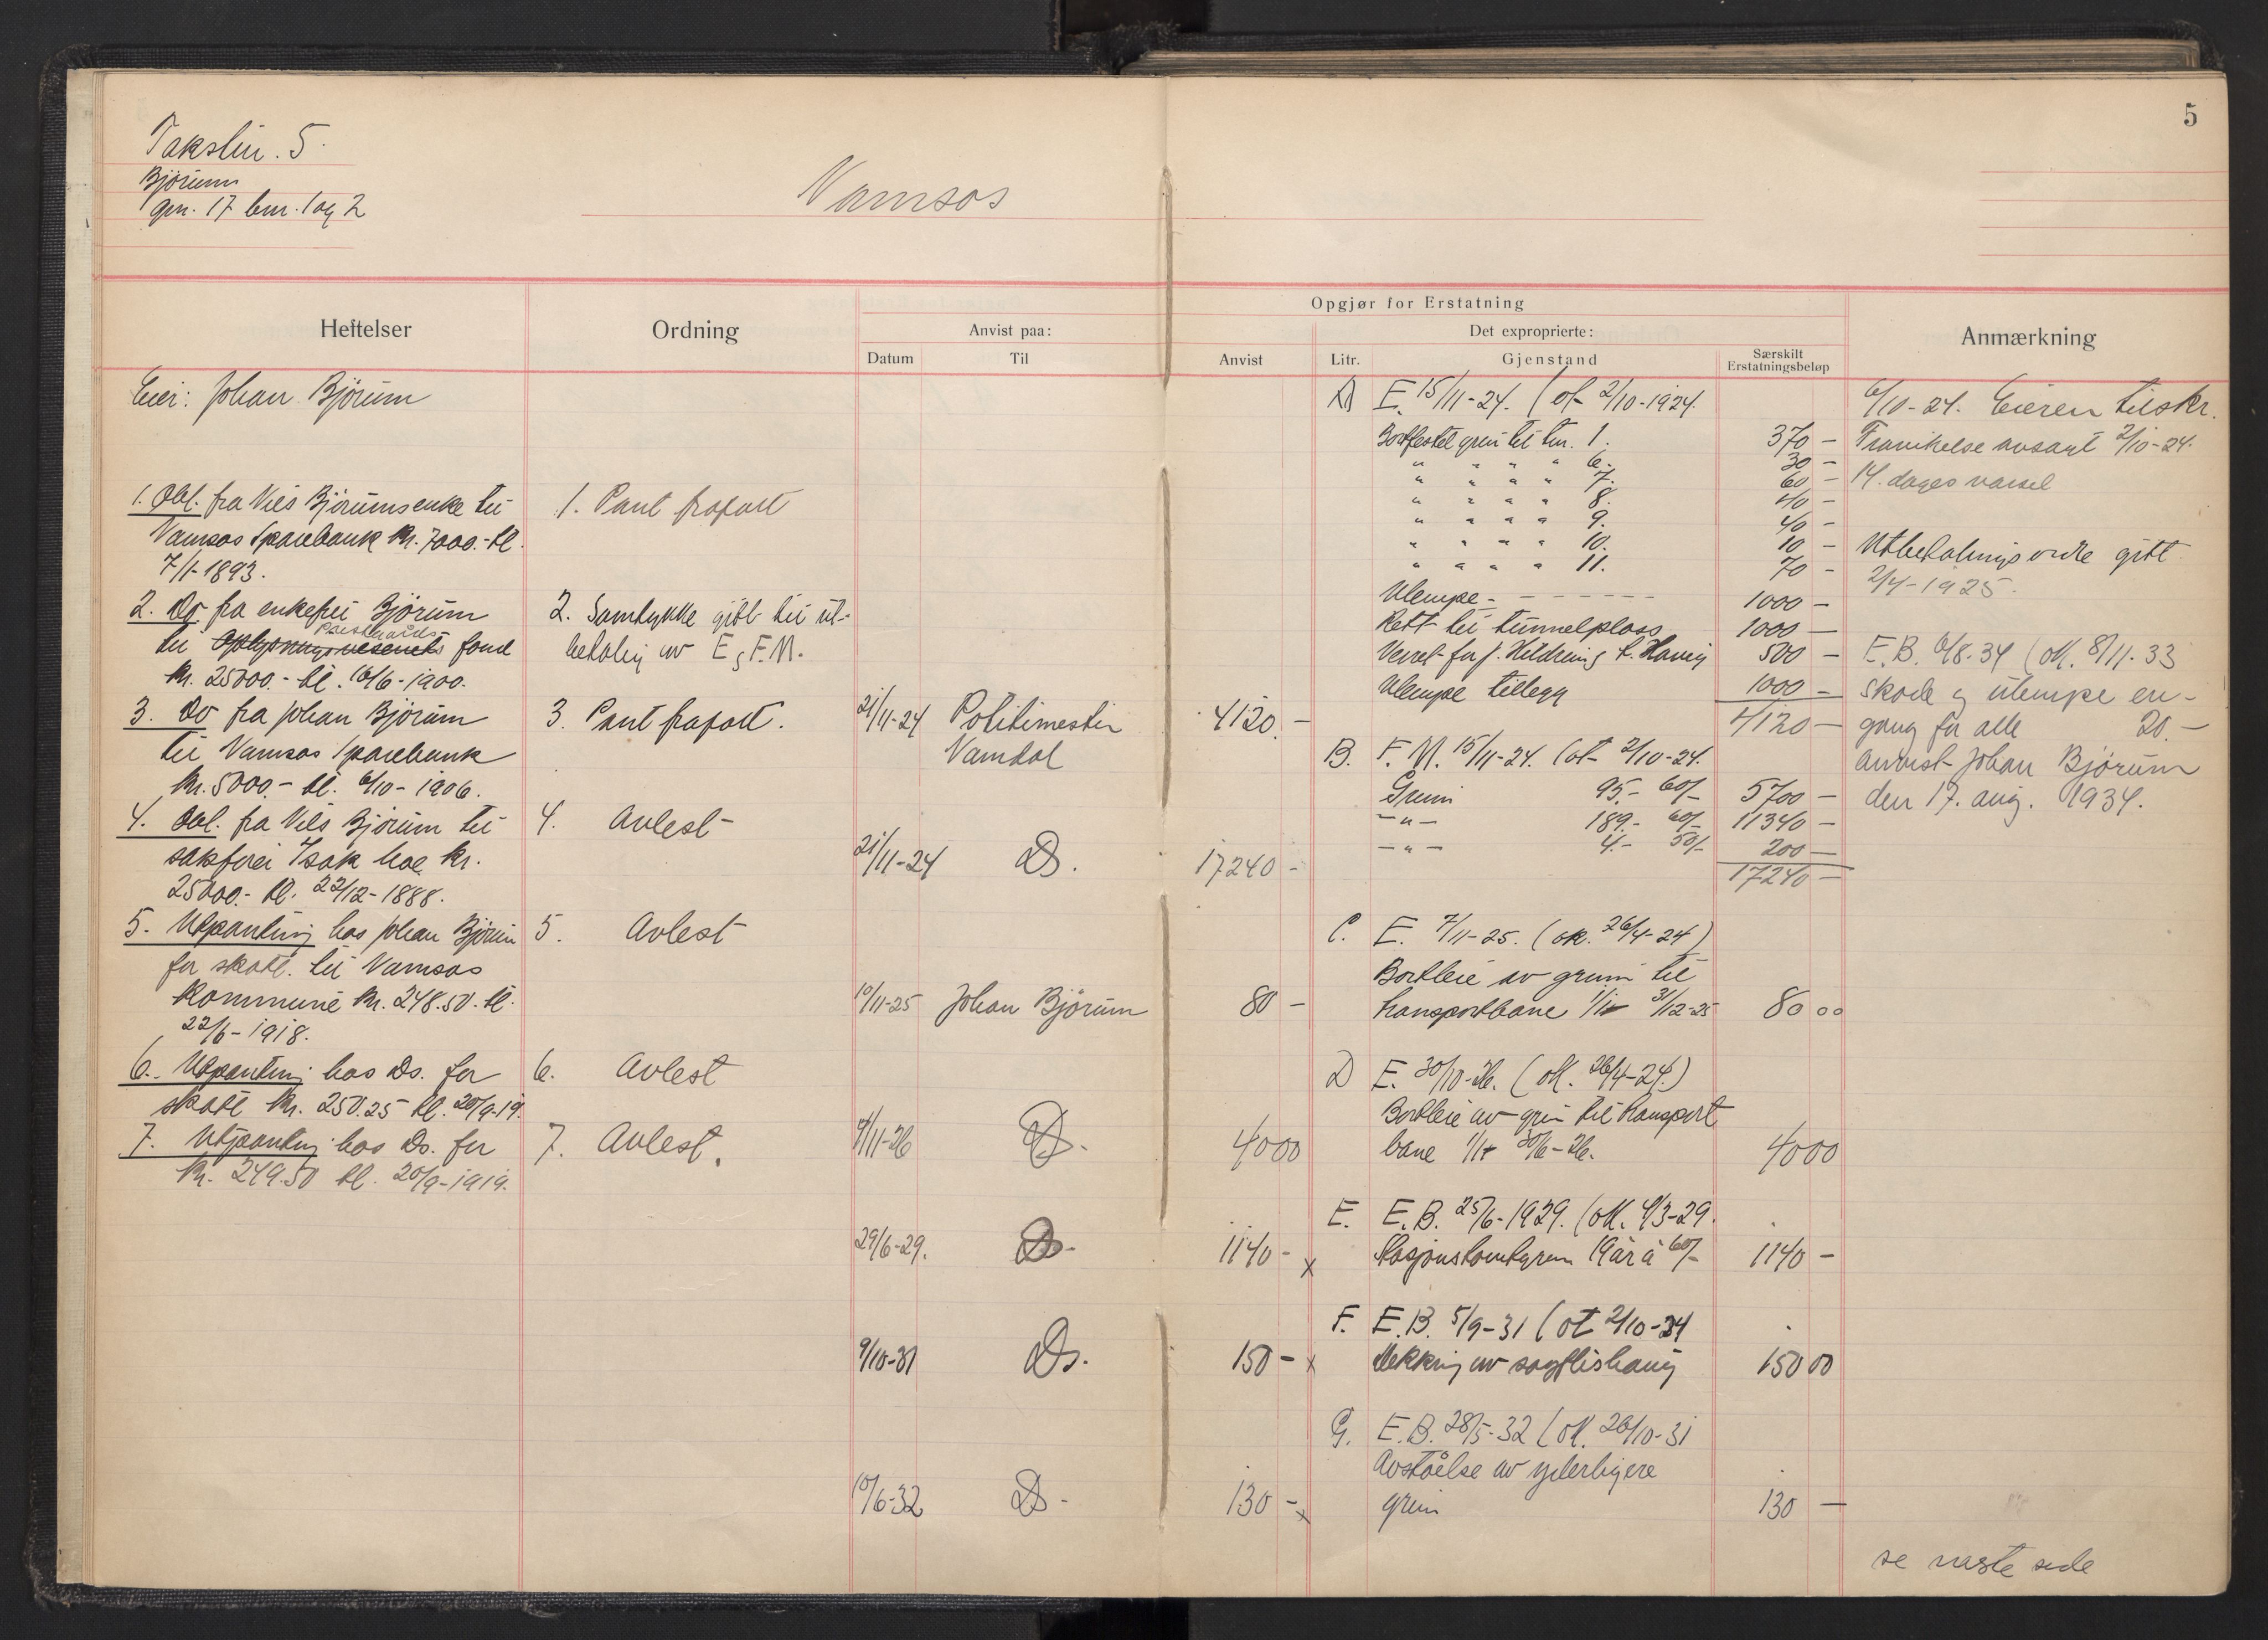 5
Takstnr. 5.
Bjørum
gnr. 17 bnr. 1 og 2
Namsos
Heftelser
Ordning
Opgjør for Erstatning
Anvist paa:
Datum
Til
Anvist
Det exproprierte:
Litr.
Gjenstand
Særskilt
Erstatningsbeløp
Anmærkning
Eier: Johan Bjørum
1. Obl. fra Nils Bjørums enke til
Namsos Sparebank kr. 7000.- tl.
7/1-1893.
2. Do fra enkefru Bjørum
til Oplysningsvesenets fond
kr. 25000.- tl. 16/6-1900.
3. Do fra Johan Bjørum
til Namsos Sparebank
kr. 5000.- tl. 6/10-1906.
4. Obl. fra Nils Bjørum til
sakfører Isak Moe kr.
25000.- tl. 22/12-1888.
5. Utpanting hos Johan Bjørum
for skatt. til Namsos
Kommune kr. 248.50. tl.
22/6-1918.
6. Utpanting hos Ds. for
skatt kr. 250.25 tl. 20/9-19.
7. Utpanting hos Ds. for
kr. 249.50 tl. 20/9-1919.
1. Pant frafalt
2. Samtykke gitt til ut-
betaling av E, F.M.
3. Pant frafalt.
4. Avlest
5. Avlest
6. Avlest
7. Avlest.
21/11-24 Politimester 4120.-
Namdal
21/11-24 Ds. 17240-
10/11-25 Johan Bjørum 80-
9/11-26 Ds. 4000
29/6-29. Ds. 1140- x
9/10-31 Ds. 150- x
10/6-32 Ds- 130- x
A E. 15/11-24. (ot 2/10-1924.
Bortfestet grun til tnr. 1. 370-
" " " " 6. 30-
" " " " 7. 60-
" " " " 8. 40-
" " " " 9. 40-
" " " " 10. 10-
" " " " 11. 70-
Ulempe - - - - - - - 1000-
Rett til tunnelplass 1000-
500-
Ulempe tillegg 1000-
4120-
B. F. M. 15/11-24. (ot 2/10-24.
Grunn 95.- 60/- 5700-
-"- 189.- 60/- 11340-
-"- 4.- 50/- 200-
17240-
C. E. 7/11-25. (ok. 26/4-24)
Bortleie av grunn til
transportbane 1/1- 31/12-25 80 00
D E. 30/10-26. (ok. 26/4-24.)
Bortleie av grun til transport
bane 1/1- 30/6-26. 4000
E. E.B. 25/6-1929. (ok. 4/3-29.
Stasjonstomtgrun 19 ar à 60/- 1140-
F. E.B. 5/9-31 (ot 2/10-24
Dekking av sagflishaug 150 00
G. E.B. 28/5-32 (ok. 26/10-31
Avståelse av yderligere
grun 130-
6/10-24. Eieren tilskr.
Fravikelse avsagt 2/10-24.
14. dages varsel
Utbetalings ordre gitt
2/4-1925.
E.B. 6/8-34 (ok. 8/11-33
skade og ulempe en-
gang for alle 20.-
anvist Johan Bjørum
den 17. aug. 1934.
se næste side